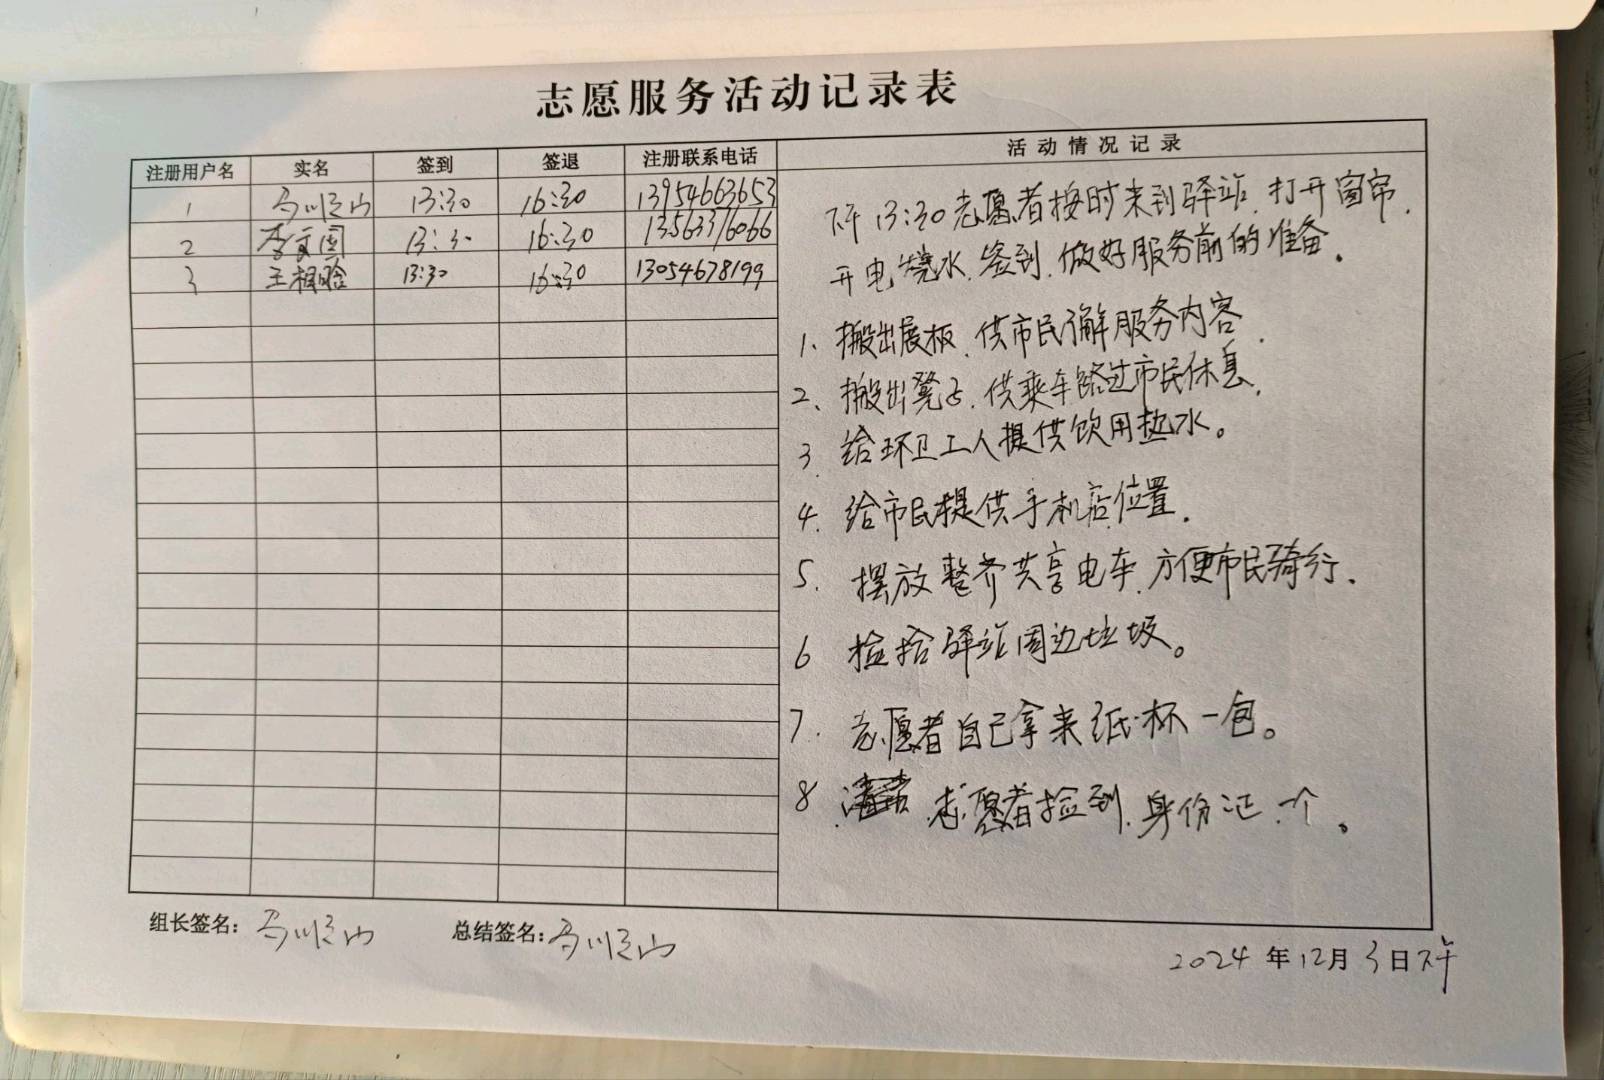 志愿服务活动记录表
注册用户名 实名 签到 签退 注册联系电话 活动情况记录
1 马顺山 13:30 16:30 13954663653
2 李文国 13:30 16:30 13563376066
3 王相晗 13:30 16:30 13054678199
下午13:30志愿者按时来到驿站,打开窗帘,
开电烧水,签到,做好服务前的准备。
1、搬出展板,供市民了解服务内容.
2、搬出凳子,供乘车路过市民休息.
3.给环卫工人提供饮用热水。
4.给市民提供手机店位置.
5.摆放整齐共享电车,方便市民骑行.
6 捡拾驿站周边垃圾。
7.志愿者自己拿来纸杯一包。
8 志愿者捡到身份证一个。
组长签名:马顺山 总结签名:马顺山
2024年12月3日下午